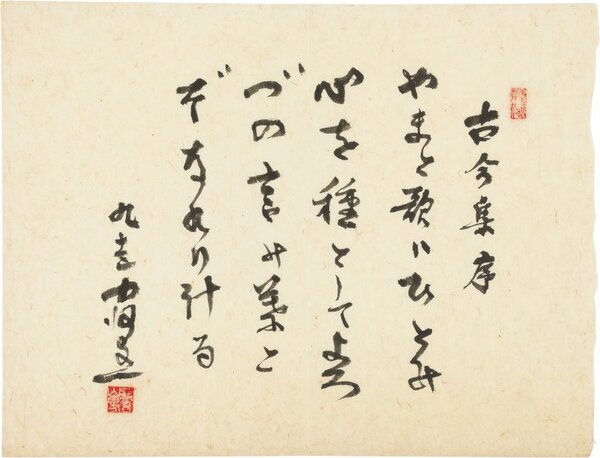 古今集序
やまと歌ハひとの
心を種としてよろ
づの言の葉と
ぞなれり計る